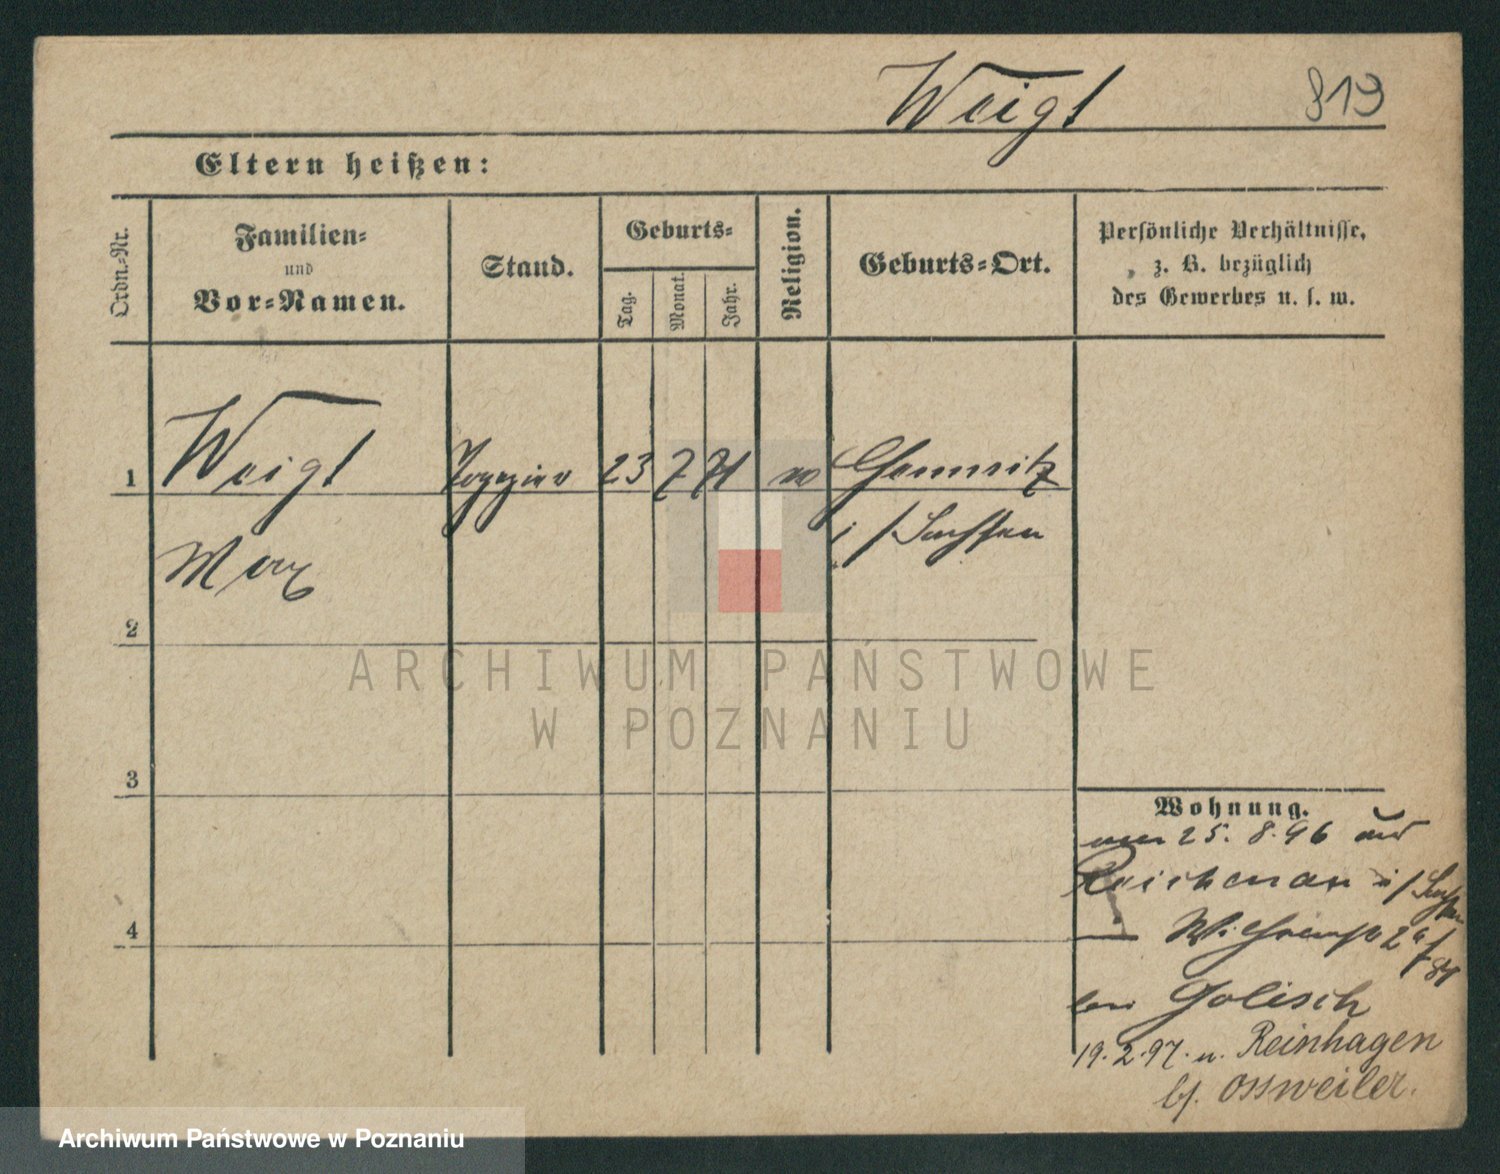 Weigt 819
Eltern heißen:
Ordn.-Nr.
Familien-
und
Vor-Namen.
Stand.
Geburts-
Tag.
Monat.
Jahr.
Religion.
Geburts-Ort.
Persönliche Verhältnisse,
z. B. bezüglich
des Gewerbes u. s. w.
1 Weigt Tapezier 23 7 71 Chemnitz
i/Sachsen
Max
2
ARCHIWUM PAŃSTWOWE
W POZNANIU
3
4
Wohnung.
25. 8. 96 aus
Reichenau i/Sachsen
bei Golisch
19. 2. 97. n. Reinhagen
bf. Ossweiler.
Archiwum Państwowe w Poznaniu